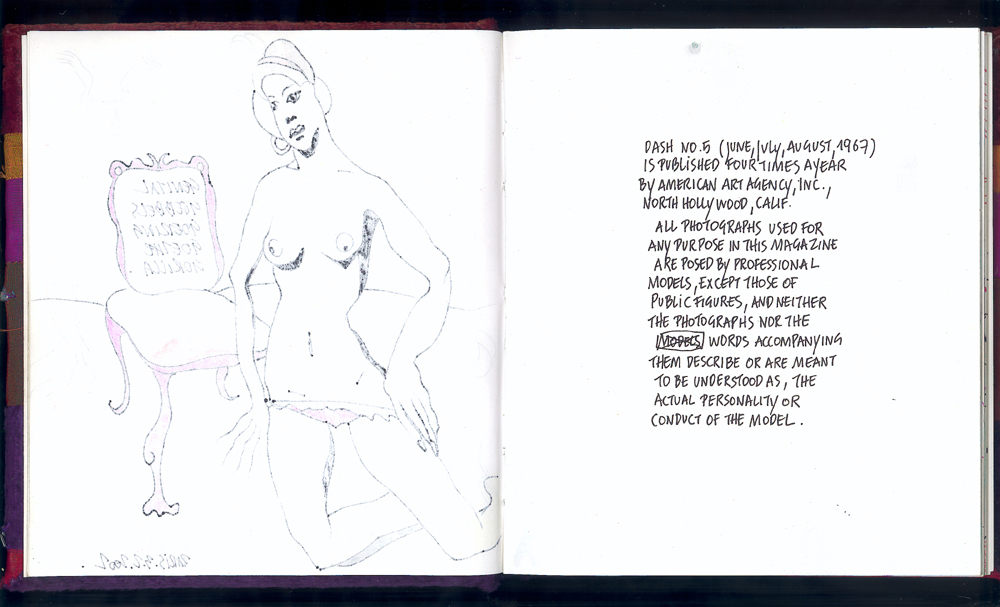 GENITAL
GOERING
GOETHE
GORILLA
DASH NO.5 (JUNE, JULY, AUGUST, 1967)
IS PUBLISHED FOUR TIMES A YEAR
BY AMERICAN ART AGENCY, INC.,
NORTH HOLLYWOOD, CALIF.
ALL PHOTOGRAPHS USED FOR
ANY PURPOSE IN THIS MAGAZINE
ARE POSED BY PROFESSIONAL
MODELS, EXCEPT THOSE OF
PUBLIC FIGURES, AND NEITHER
THE PHOTOGRAPHS NOR THE
MODELS WORDS ACCOMPANYING
THEM DESCRIBE OR ARE MEANT
TO BE UNDERSTOOD AS, THE
ACTUAL PERSONALITY OR
CONDUCT OF THE MODEL.